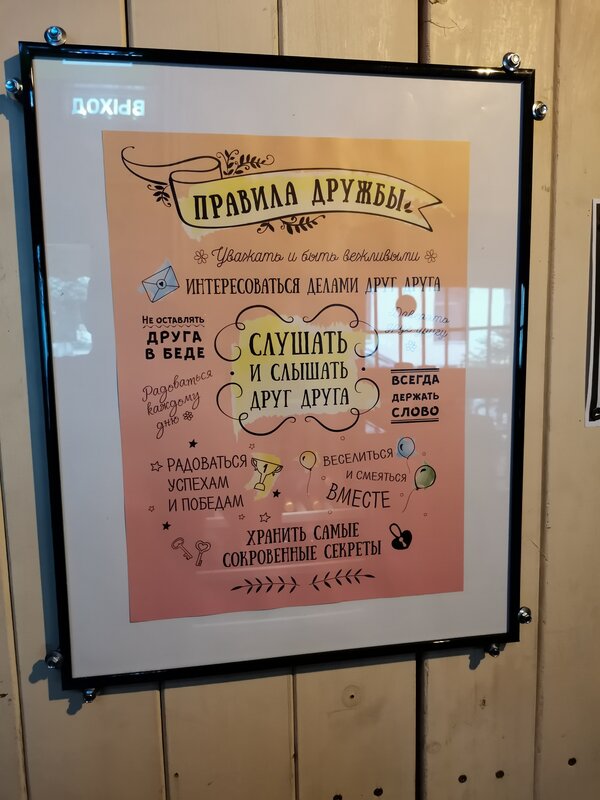 ВЫХОД
ПРАВИЛА ДРУЖБЫ
Уважать и быть вежливыми
ИНТЕРЕСОВАТЬСЯ ДЕЛАМИ ДРУГ ДРУГА
НЕ ОСТАВЛЯТЬ
ДРУГА
В БЕДЕ
СЛУШАТЬ
И СЛЫШАТЬ
ДРУГ ДРУГА
Радоваться
каждому
дню
ВСЕГДА
ДЕРЖАТЬ
СЛОВО
РАДОВАТЬСЯ
УСПЕХАМ
И ПОБЕДАМ
1
ВЕСЕЛИТЬСЯ
И СМЕЯТЬСЯ
ВМЕСТЕ
ХРАНИТЬ САМЫЕ
СОКРОВЕННЫЕ СЕКРЕТЫ